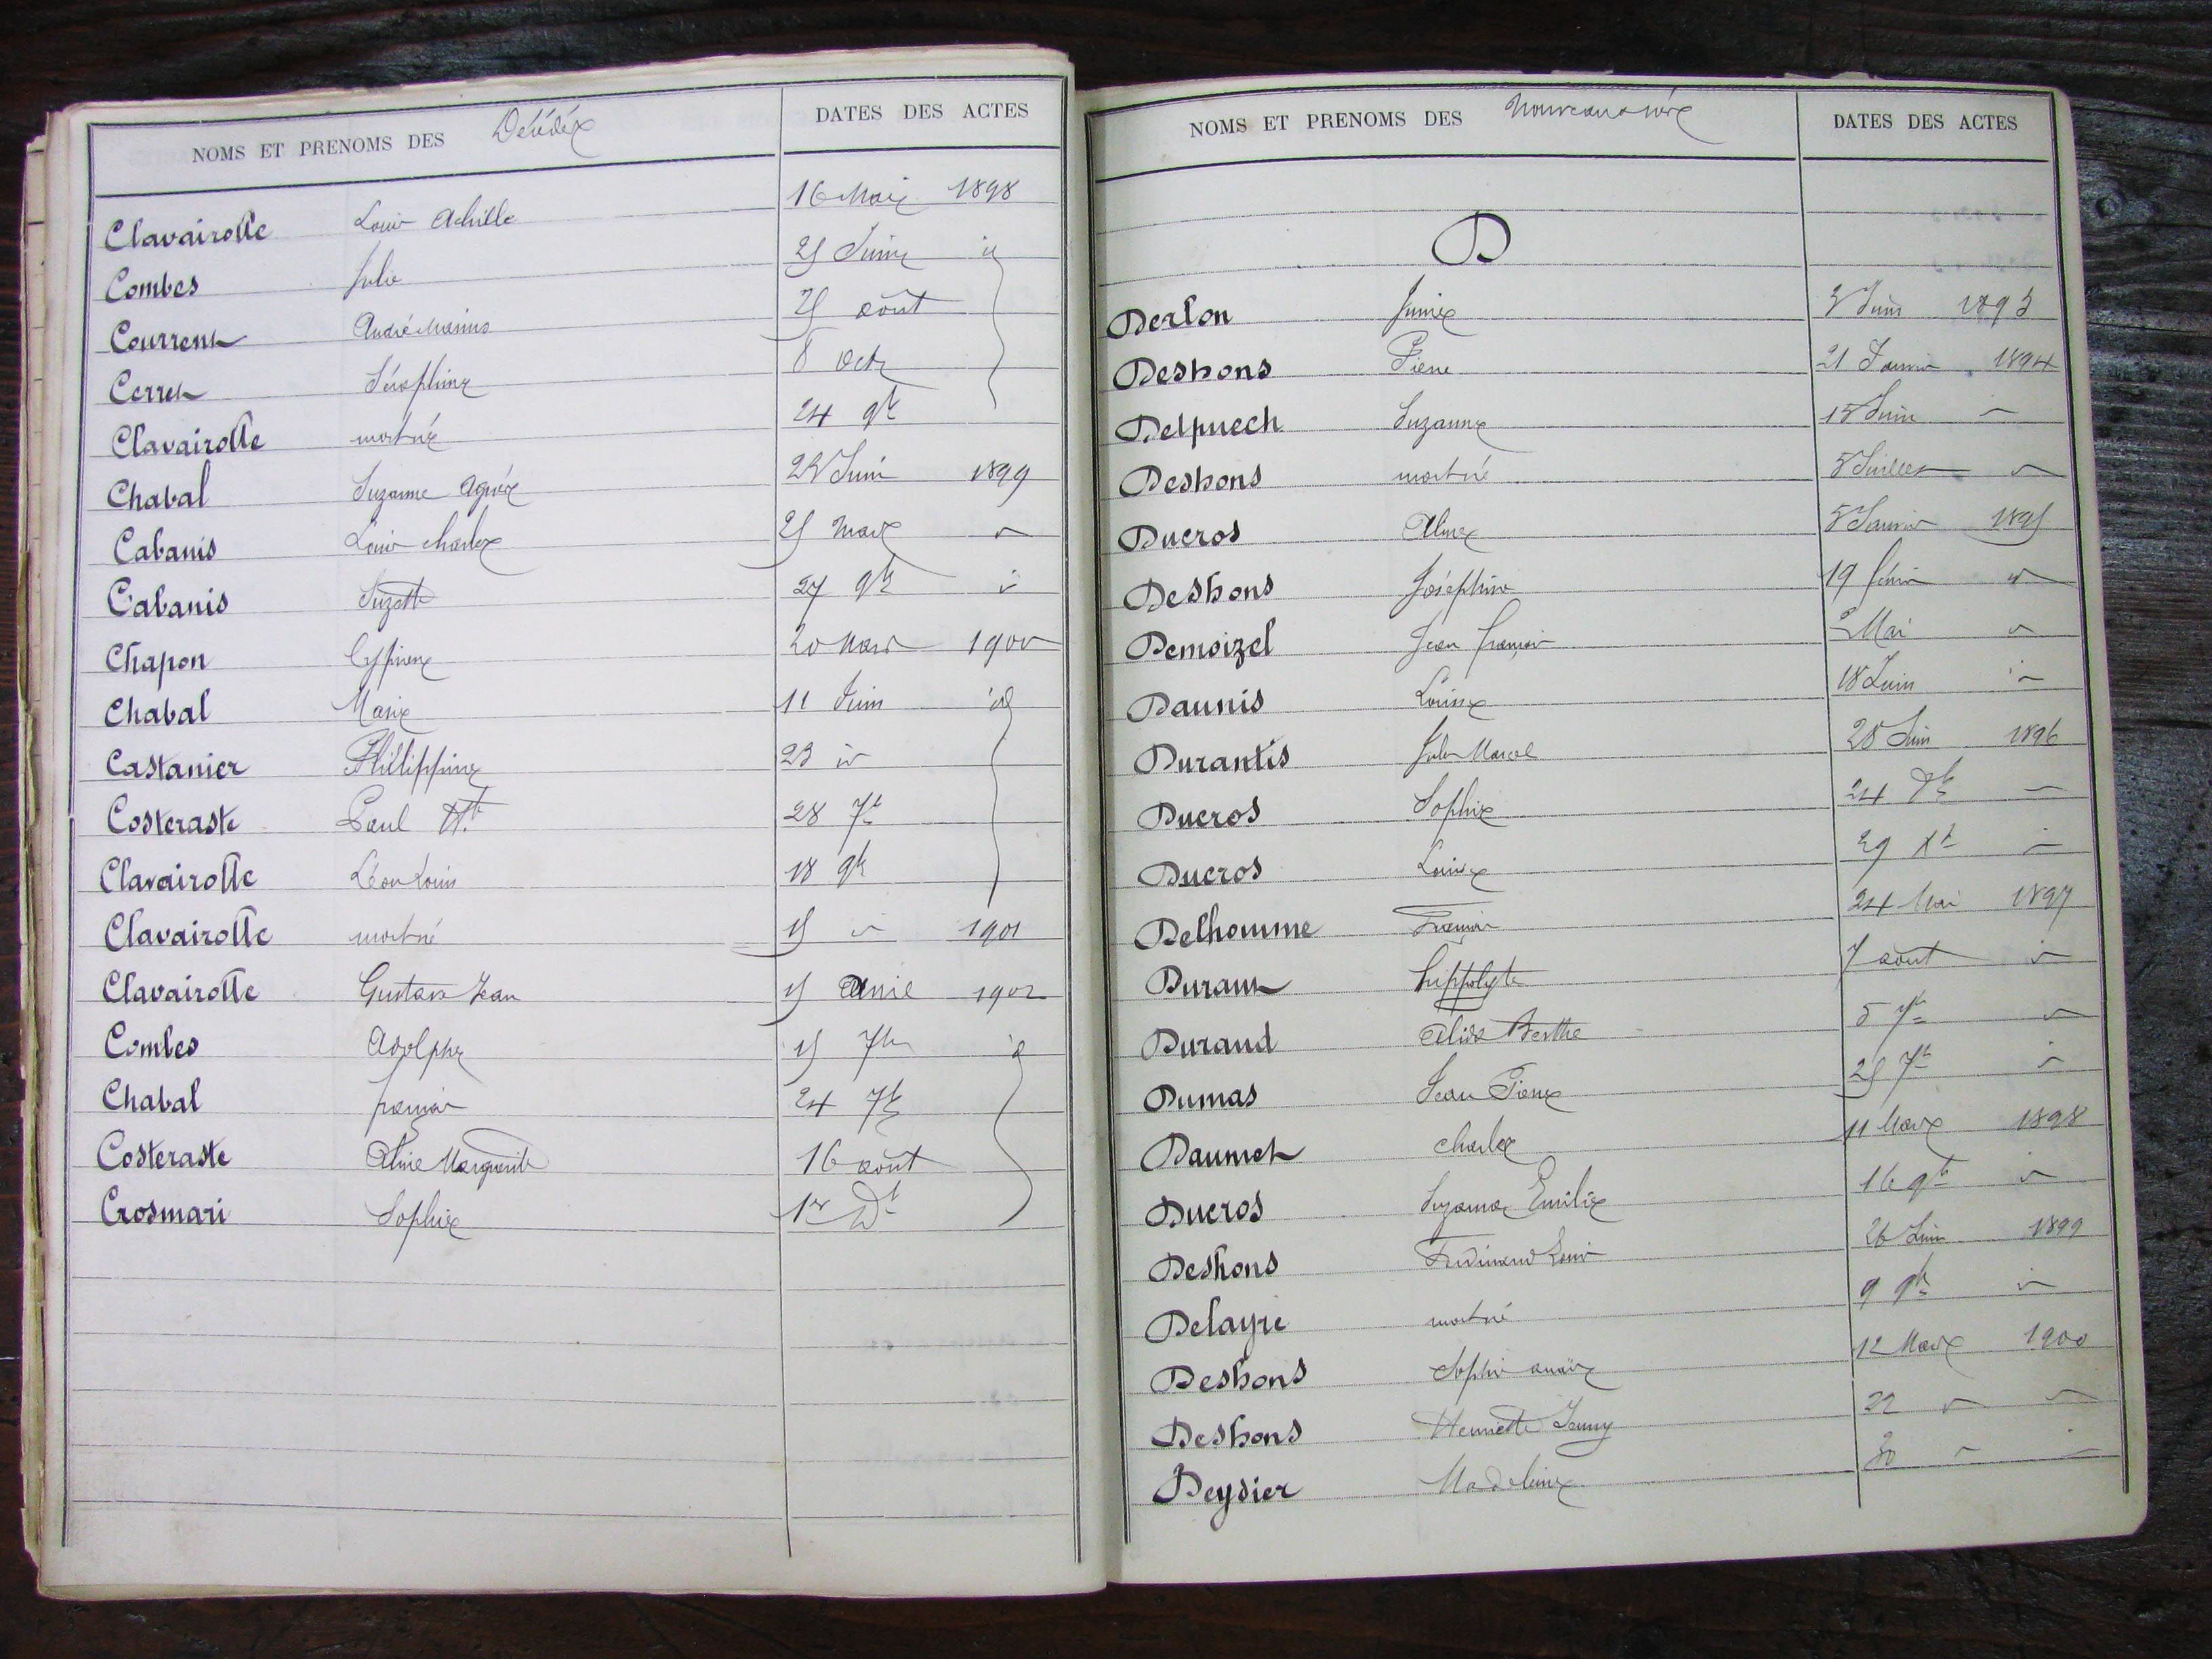 NOMS ET PRENOMS DES Décédés DATES DES ACTES
Clavairolle Louis Achille 16 Mai 1898
Combes Julie 25 Juin id
Courrent André Marius 25 août
Cerret Séraphine 8 Octe
Clavairolle mort né 24 9bre
Chabal Suzanne Agnès 23 Juin 1899
Cabanis Louis Charles 25 Mars id
Cabanis Suzette 27 9bre id
Chapon Cyprien 20 Mars 1900
Chabal Marie 11 Juin id
Castanier Phillippine 23 id
Costeraste Paul 28 7bre
Clavairolle Léon Louis 18 9bre
Clavairolle mort né 15 1901
Clavairolle Gustave Jean 15 Avril 1902
Combes Adolphe 15 7bre id
Chabal françois 24 7bre
Costeraste Aline Marguerite 16 août
Crosmari Sophie 1er
NOMS ET PRENOMS DES Nouveaux nés DATES DES ACTES
D
Derlon Juin 1893
Deshons Pierre 21 Janvier 1894
Delpuech Suzanne 15 Juin
Deshons mort né 5 Juillet
Ducros Aline 5 Janvier 1895
Deshons Joséphine 19 février
Demoizel Jean françois Mai
Daunis Louise 18 Juin
Durantis Jules Marcel 28 Juin 1896
Ducros Sophie 24
Ducros Louise 29 Xbre
Delhomme François 24 Mai 1897
Durant hippolyte 7 août
Durand Alida Berthe 5 7bre
Dumas Jean Pierre 25 7bre
Daumet Charles 11 Mars 1898
Ducros Suzanne Emilie 16 9bre
Deshons Ferdinand Louis 26 Juin 1899
Delayre mort né 9 9bre
Deshons Sophie anaïs 12 Mars 1900
Deshons Henriette Jenny 22
Deydier Madeleine 30